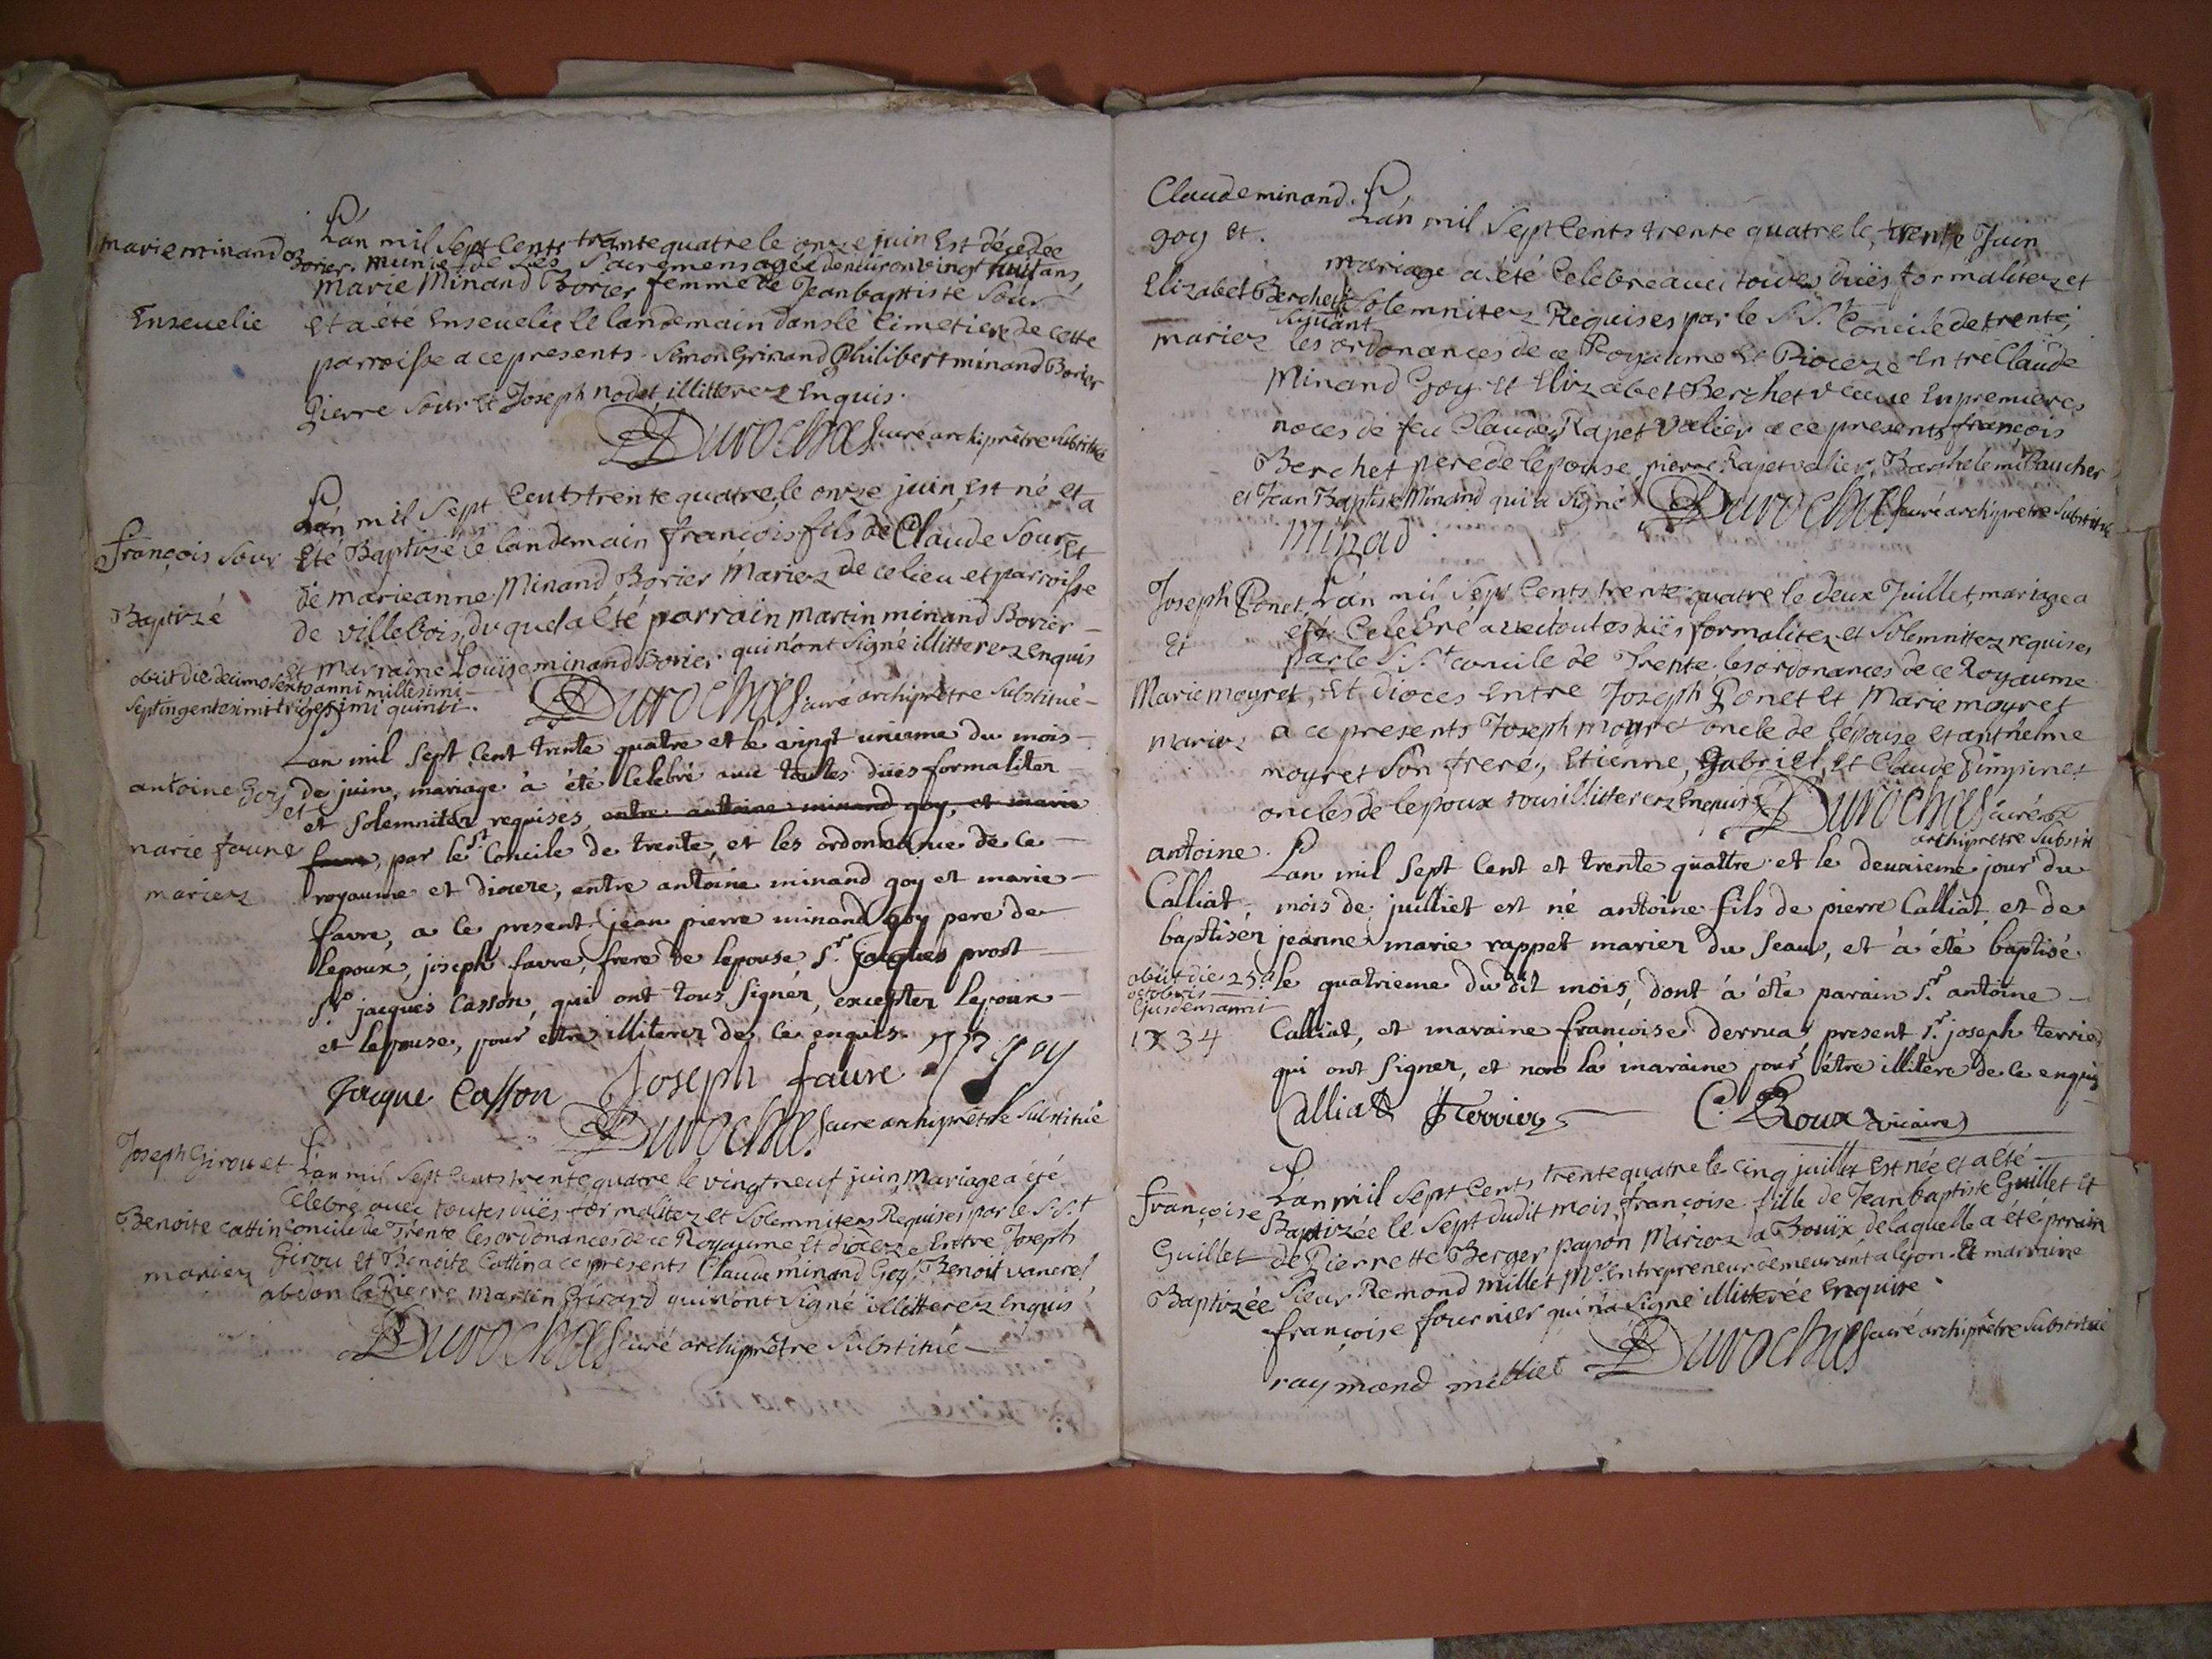 Lán mil Sept Cents trante quatre le onze juin Est décedée
marie minand Borier. munie de Ses Sacremens agée denuiron vingt huit ans,
Marie Minand Borier femme de Jeanbaptiste Sour
Enseuelie Et a été Enseuelie le landemain dans le Cimetiere de Cette
parroisse a ce presents Simon Grinand Philibert minand Borier
Pierre Sour et Joseph nodet illitterez Enquis.
Duroches curé archiprêtre substitué
Lán mil Sept Cents trente quatre, le onze juin, Est né et a
françois Sour Eté Baptizé le landemain françois fils de Claude Sour et
de marieanne Minand Borier Mariez de ce lieu et parroisse
Baptizé de villebois, duquel a été parrain martin minand Borier
Et marraine Louise minand Borier qui n'ont Signé illitterez Enquis
obiit die decimo Sexto anni millesimi
Septingentesimi trigesimi quinti.
Duroches curé archiprêtre Substitué
Lan mil Sept Cent trente quatre et le vingt unieme du mois
antoine Goy de juin, mariage à été Celebré avec toutes düés formalitez
et et Solemnitez requises, entre antoine minand goy, et marie
marie faune favre, par le st Concile de trente, et les ordonnance de ce
mariez royaume et diocere, entre antoine minand goy et marie
favre, a ce present jean pierre minand goy pere de
lepoux, joseph favre, frere de lepouse, Sr. jacques prost
Sr jacques Casson, qui ont tous Signéz, exceptez lepoux
et lepouse, pour etre illiterez de ce enquis. JP goy
Jacque Casson Joseph faure
Duroches curé archiprêtre Substitué
Joseph Girou et Lán mil Sept Cents trente quatre le vingt neuf juin Mariage a été
Célébré avec toutes düés formalitez et Solemnitez Requises par le S.S.t
Benoite Cattin Concile de Trente les ordonances de ce Royaume Et diocèze Entre Joseph
mariez Girou et Benoite Cattin a ce presents Claude minand Goy, Benoit vancrel
abdon la Pierre Martin Grisard qui n'ont Signé illitterez Enquis
Duroches curé archiprêtre Substitué
Claude minand Lán mil Sept Cents trente quatre le, trente Juin
goy et. mariage a été Celebré avec toutes düés formalitez et
Elizabet Berchet Solemnitez Requises par le S.S.t Concile de trente,
mariez Suiuant les ordonances de ce Royaume Et Dioceze Entre Claude
Minand Goy Et Elizabet Berchet vécue En premieres
noces de feu Claude Rapet valier a ce presents françois
Berchet pere de lépouse, pierre Rapet valier, Barthelemi Baucher
et Jean Baptiste Minand qui a Signé Duroches curé archiprêtre Substitué
Minad
Joseph Ponet Lán mil Sept Cents trente quatre le deux Juillet, mariage a
Et été Celebré avec toutes düés formalitez et Solemnittez requises
par le S.S.t concile de Trente, les ordonances de ce Royaume
Marie moyret, Et dioces Entre Joseph Ponet et Marie moyret
mariez a ce presents Joseph moyret oncle de lépouse et anthelme
moyret Son frere, Etienne, Gabriel, et Claude Pimpinet
oncles de lepoux tous illitterez Enquis Duroches curé
archiprêtre Substit
antoine Lan mil Sept Cent et trente quattre et le deuxieme jour du
Calliat mois de juilliet est né antoine fils de pierre Calliat et de
baptiséz jeanne marie rappet mariez du Seau, et à été baptisé
obiit die 25a le quatrieme du dit mois, dont à été parain Sr. antoine
octobris
Ejusdem anni
1734 Calliat, et maraine françoise derrua, present Sr. joseph terrier
qui ont Signez, et non la maraine pour être illitere de ce enquis
Calliat JTerrier C. Roux vicaire
Lán mil Sept Cents trente quatre le Cinq juillet Est née et a été
françoise Baptizée le Sept dudit mois, françoise fille de Jeanbaptiste Guillet Et
Guillet de Pierrette Berger papon Mariez a Boüix de laquelle a été prrain
Baptizée Sieur Remond millet Me. Entrepreneur demeurant a lyon. Et marraine
françoise fournier qui n'a Signé illitterée Enquise.
raymond milliet Duroches curé archiprêtre Substitué